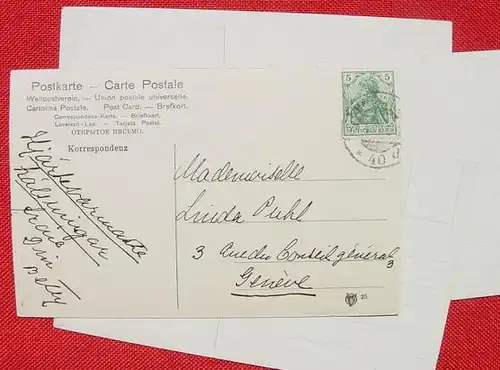 Postkarte — Carte Postale
Weltpostverein. — Union postale universelle.
Cartolina Postale. Post Card. — Brefkort.
Correspondenz-Karte. — Briefkaart.
Levelező-Lap. — Tarjeta Postal.
ОТКРЫТОЕ ПИСЬМО.
Korrespondenz
Hjärtevarmaste
hälsningar
från
Din
Betty
5 5
DEUTSCHES REICH
* 40 d
Mademoiselle
Linda Puhl
3 Conseil général 3
Genève